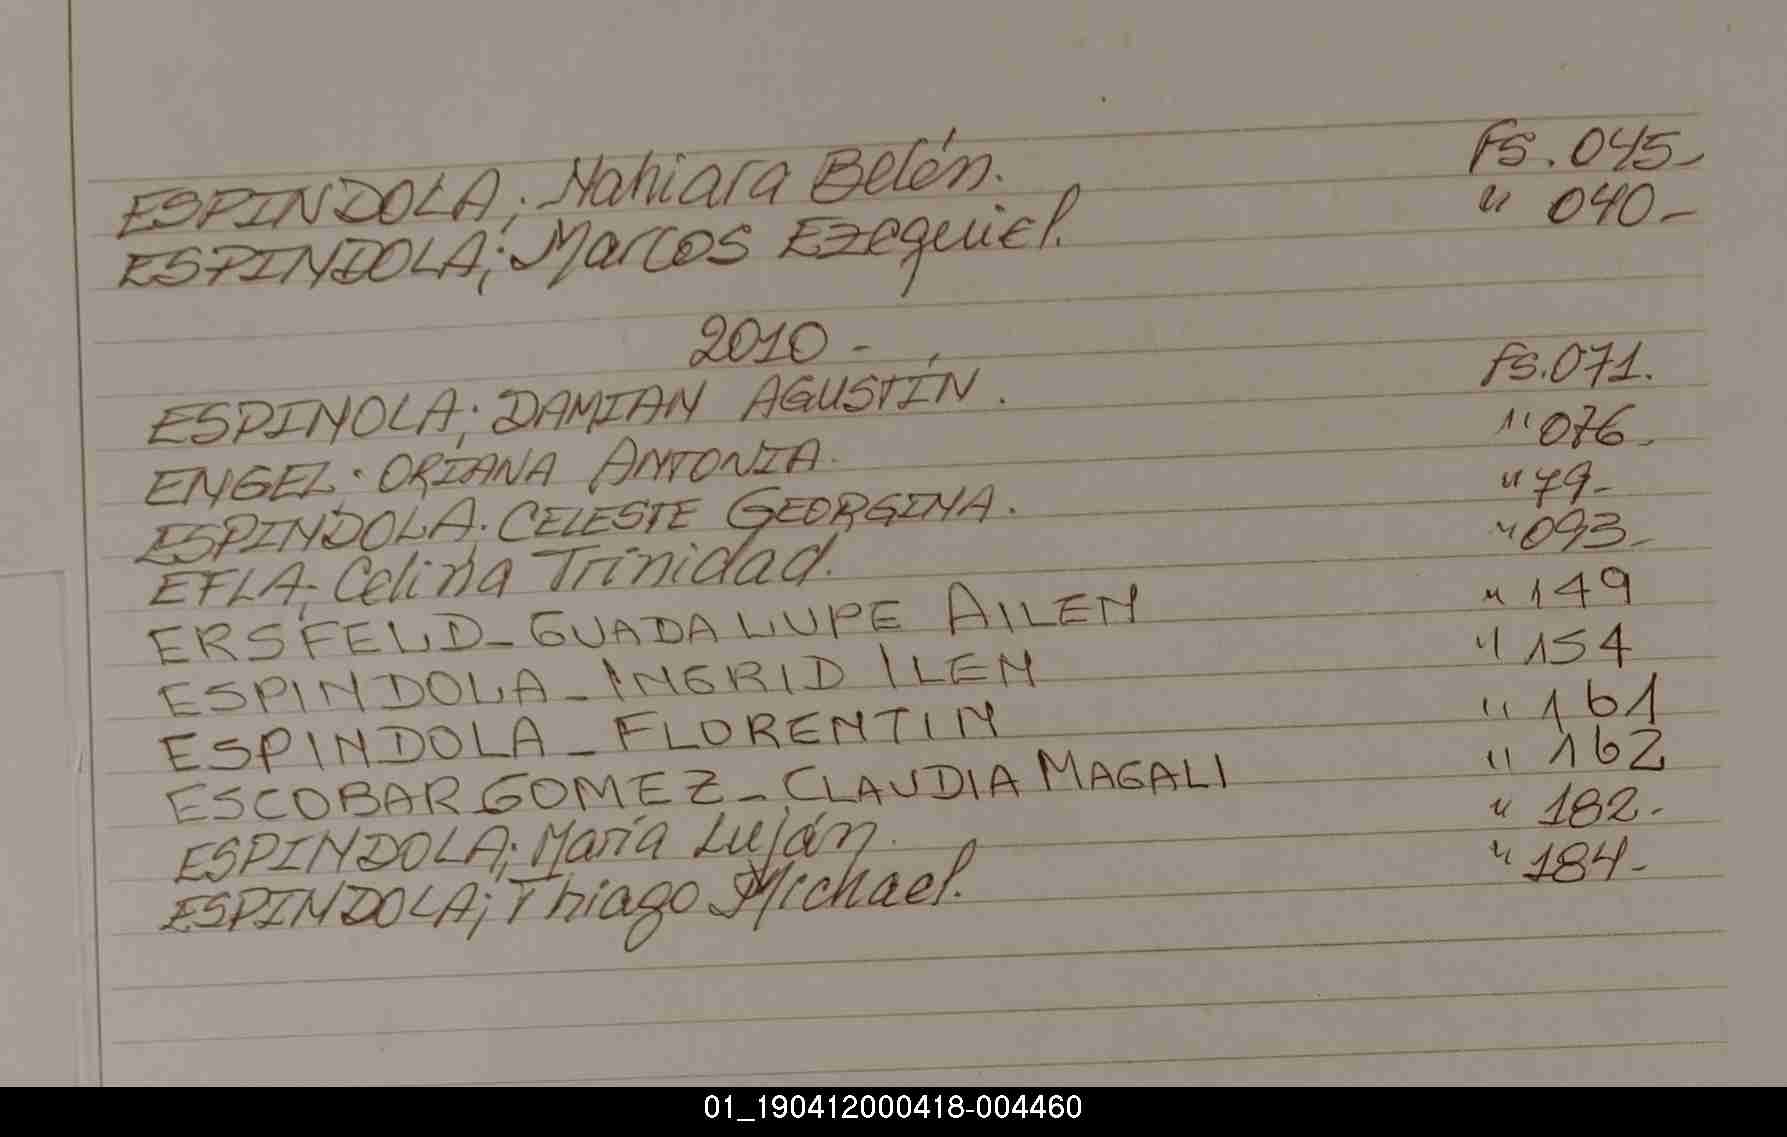 ESPINDOLA; Nahiara Belén. Fs. 045-
ESPINDOLA; Marcos Ezequiel. " 040-
2010-
ESPINOLA; DAMIAN AGUSTÍN. Fs. 071.
ENGEL; ORIANA ANTONIA. " 076-
ESPINDOLA. CELESTE GEORGINA. " 79-
EFLA; Celina Trinidad. " 093-
ERSFELD_GUADALUPE AILEN " 149
ESPINDOLA_INGRID ILEN " 154
ESPINDOLA_FLORENTIN " 161
ESCOBAR GOMEZ_CLAUDIA MAGALI " 162
ESPINDOLA; María Luján. " 182-
ESPINDOLA; Thiago Michael. " 184-
01_190412000418-004460